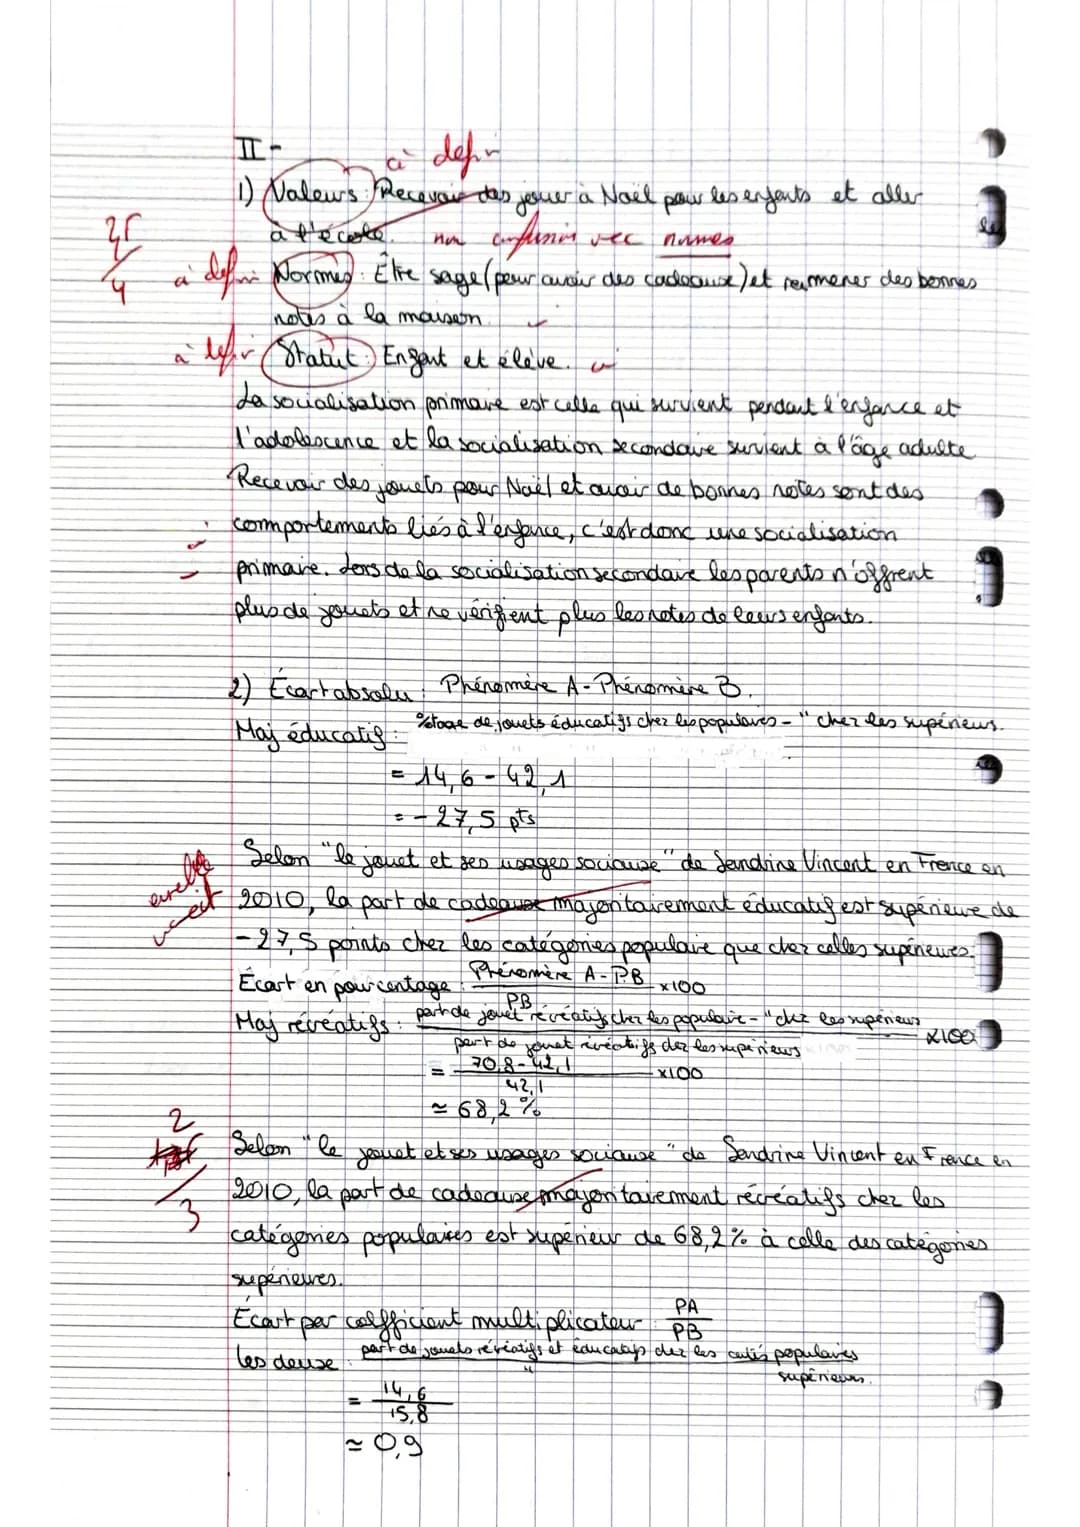 II -
à défir
1) Valeurs : Recevoir des jouer à Noël pour les enfants et aller
à l'école. non confusion avec normes
4
à défini Normes : Être sage (pour avoir des cadeaux) et ramener des bonnes
notes à la maison.
à défir Statut : Enfant et élève.
La socialisation primaire est celle qui survient pendant l'enfance et
l'adolescence et la socialisation secondaire survient à l'âge adulte
Recevoir des jouets pour Noël et avoir de bonnes notes sont des
comportements liés à l'enfance, c'est donc une socialisation
primaire. Lors de la socialisation secondaire les parents n'offrent
plus de jouets et ne vérifient plus les notes de leurs enfants.
2) Écart absolu : Phénomère A - Phénomère B.
%tage de jouets éducatifs chez les populaires - " chez les supérieurs.
Maj éducatif :
= 14,6 - 42,1
= - 27,5 pts
Selon "le jouet et ses usages sociaux" de Sandrine Vincent en France en
2010, la part de cadeaux majoritairement éducatif est supérieure de
-27,5 points chez les catégories populaire que chez celles supérieures.
Écart en pourcentage : Phénomère A - P.B x100
PB
Maj récréatifs : part de jouet récréatifs chez les populaire - " chez les supérieurs x100
part de jouet récréatifs chez les supérieurs
= 70,8 - 42,1 x100
42,1
≃ 68,2 %
2
3
Selon "le jouet et ses usages sociaux" de Sandrine Vincent en France en
2010, la part de cadeaux majoritairement récréatifs chez les
catégories populaires est supérieur de 68,2% à celle des catégories
supérieures.
Écart par coefficient multiplicateur : PA
PB
les deux : part de jouets récréatifs et éducatifs chez les catés populaires
" supérieurs.
= 14,6
15,8
≃ 0,9